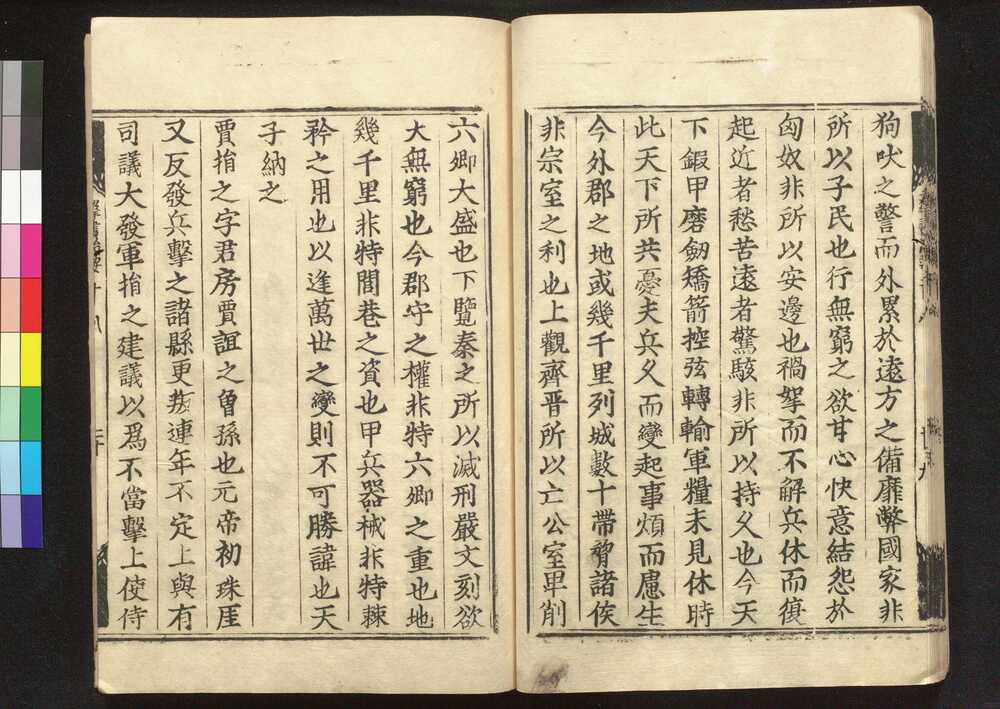 狗吠之警而外累於遠方之備靡弊國家非
所以子民也行無窮之欲甘心快意結怨於
匈奴非所以安邊也禍挐而不解兵休而復
起近者愁苦遠者驚駭非所以持久也今天
下鍛甲磨劒矯箭控弦轉輸軍糧未見休時
此天下所共憂夫兵久而變起事煩而慮生
今外郡之地或幾千里列城數十帶脅諸侯
非宗室之利也上觀齊晉所以亡公室卑削
六卿大盛也下覽秦之所以滅刑嚴文刻欲
大無窮也今郡守之權非特六卿之重也地
幾千里非特閭巷之資也甲兵器械非特棘
矜之用也以逢萬世之變則不可勝諱也天
子納之
賈捐之字君房賈誼之曾孫也元帝初珠厓
又反發兵擊之諸縣更叛連年不定上與有
司議大發軍捐之建議以爲不當擊上使侍